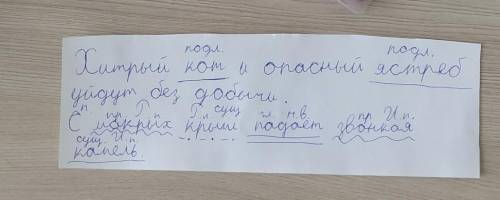 подл. подл.
Хитрый кот и опасный ястреб
уйдут без добычи.
п пр. Р. п. Р. п. сущ гл. н.в. пр. И. п.
С мокрых крыш падает звонкая
сущ. И. п.
капель.